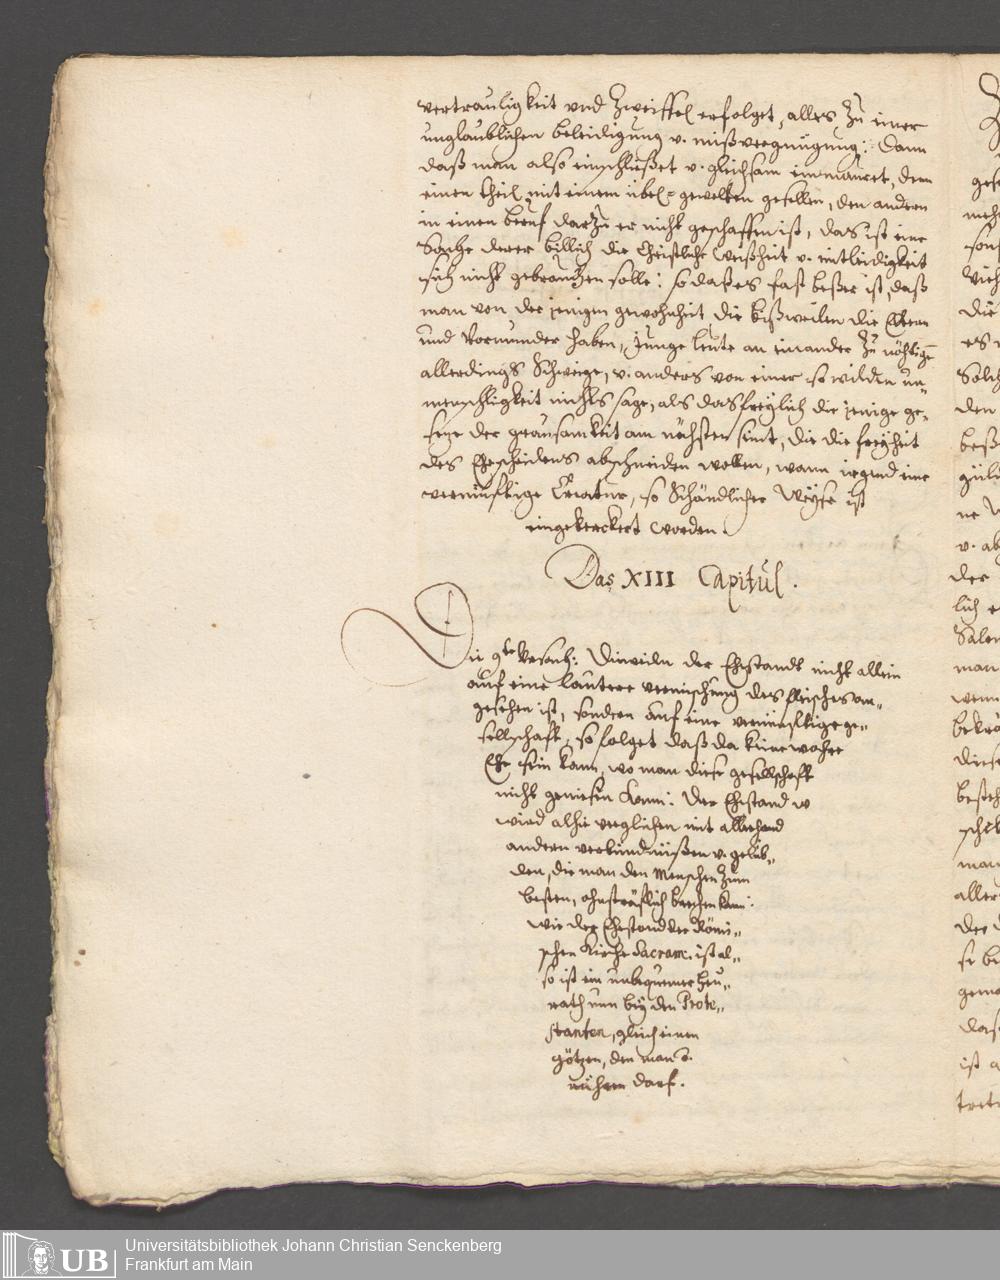 vertrauligkeit vnd Zweiffel erfolget, alles zu einer
unglaublichen beleidigung v. mißvergnügung: Dann
daß man also einschließet v. gleichsam inmauret, dem
einen theil mit einem übel- gewelten gesellen, den andern
in einen beruf darzu er nicht geschaffen ist, das ist eine
Sache derer billich die Christliche Weißheit v. mitleidigkeit
sich nicht gebrauchen solle: so daß es fast beßer ist, daß
man von der jenigen gewohnheit die bißweilen die Eltern
und Vormunder haben, junge leute an einander zu nöhtigen
allerdings Schweige, v. anders von einer so wilden un-
menschligkeit nichts sage, als das freylich die jenige ge-
setze der grausamkeit am nächsten sint, die die freyheit
des Ehescheidens abschneiden wollen, wann irgend eine
vernünftige Creatur, so Schändlicher Weyse ist
eingekerckert worden.
Das XIII Capitul.
Die 9te Ursach: Dieweiln der Ehestandt nicht allein
auf eine lautere vermischung des fleisches an-
gesehen ist, sondern auf eine vernünftige ge-
sellschaft, so folget daß da keine wahre
Ehe sein kann, wo man diese gesellschaft
nicht geniesen kann: Der Ehestand w
wird alhie verglichen mit allerhand
andern verbündnüßen v. gelüb-
den, die man den Menschen zum
besten, ohnsträflich brechen kann:
wie der Ehestand der Römi-
schen Kirche Sacram: ist al-
so ist ein unbequemer heu-
rath nun bey den Prote-
stanten, gleich einen
götzen, den man v.
rühren darf.
Universitätsbibliothek Johann Christian Senckenberg
Frankfurt am Main
UB